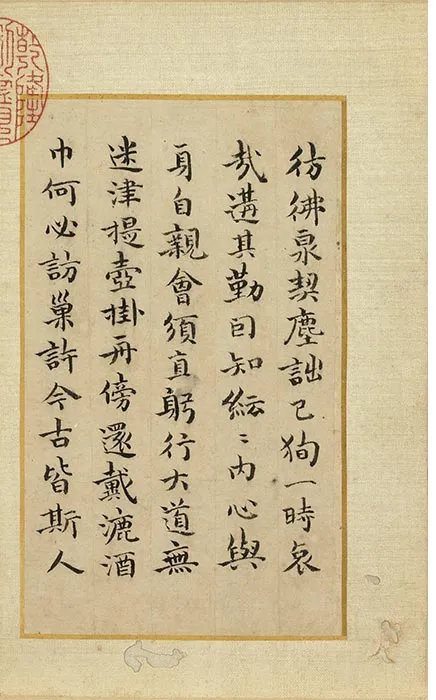 彷彿泉契塵詘己狥一時哀
哉遘其勤囙知紜〻內心與
身自親會須直躬行大道無
迷津提壺掛舟傍還戴漉酒
巾何必訪巢許今古皆斯人
乾隆